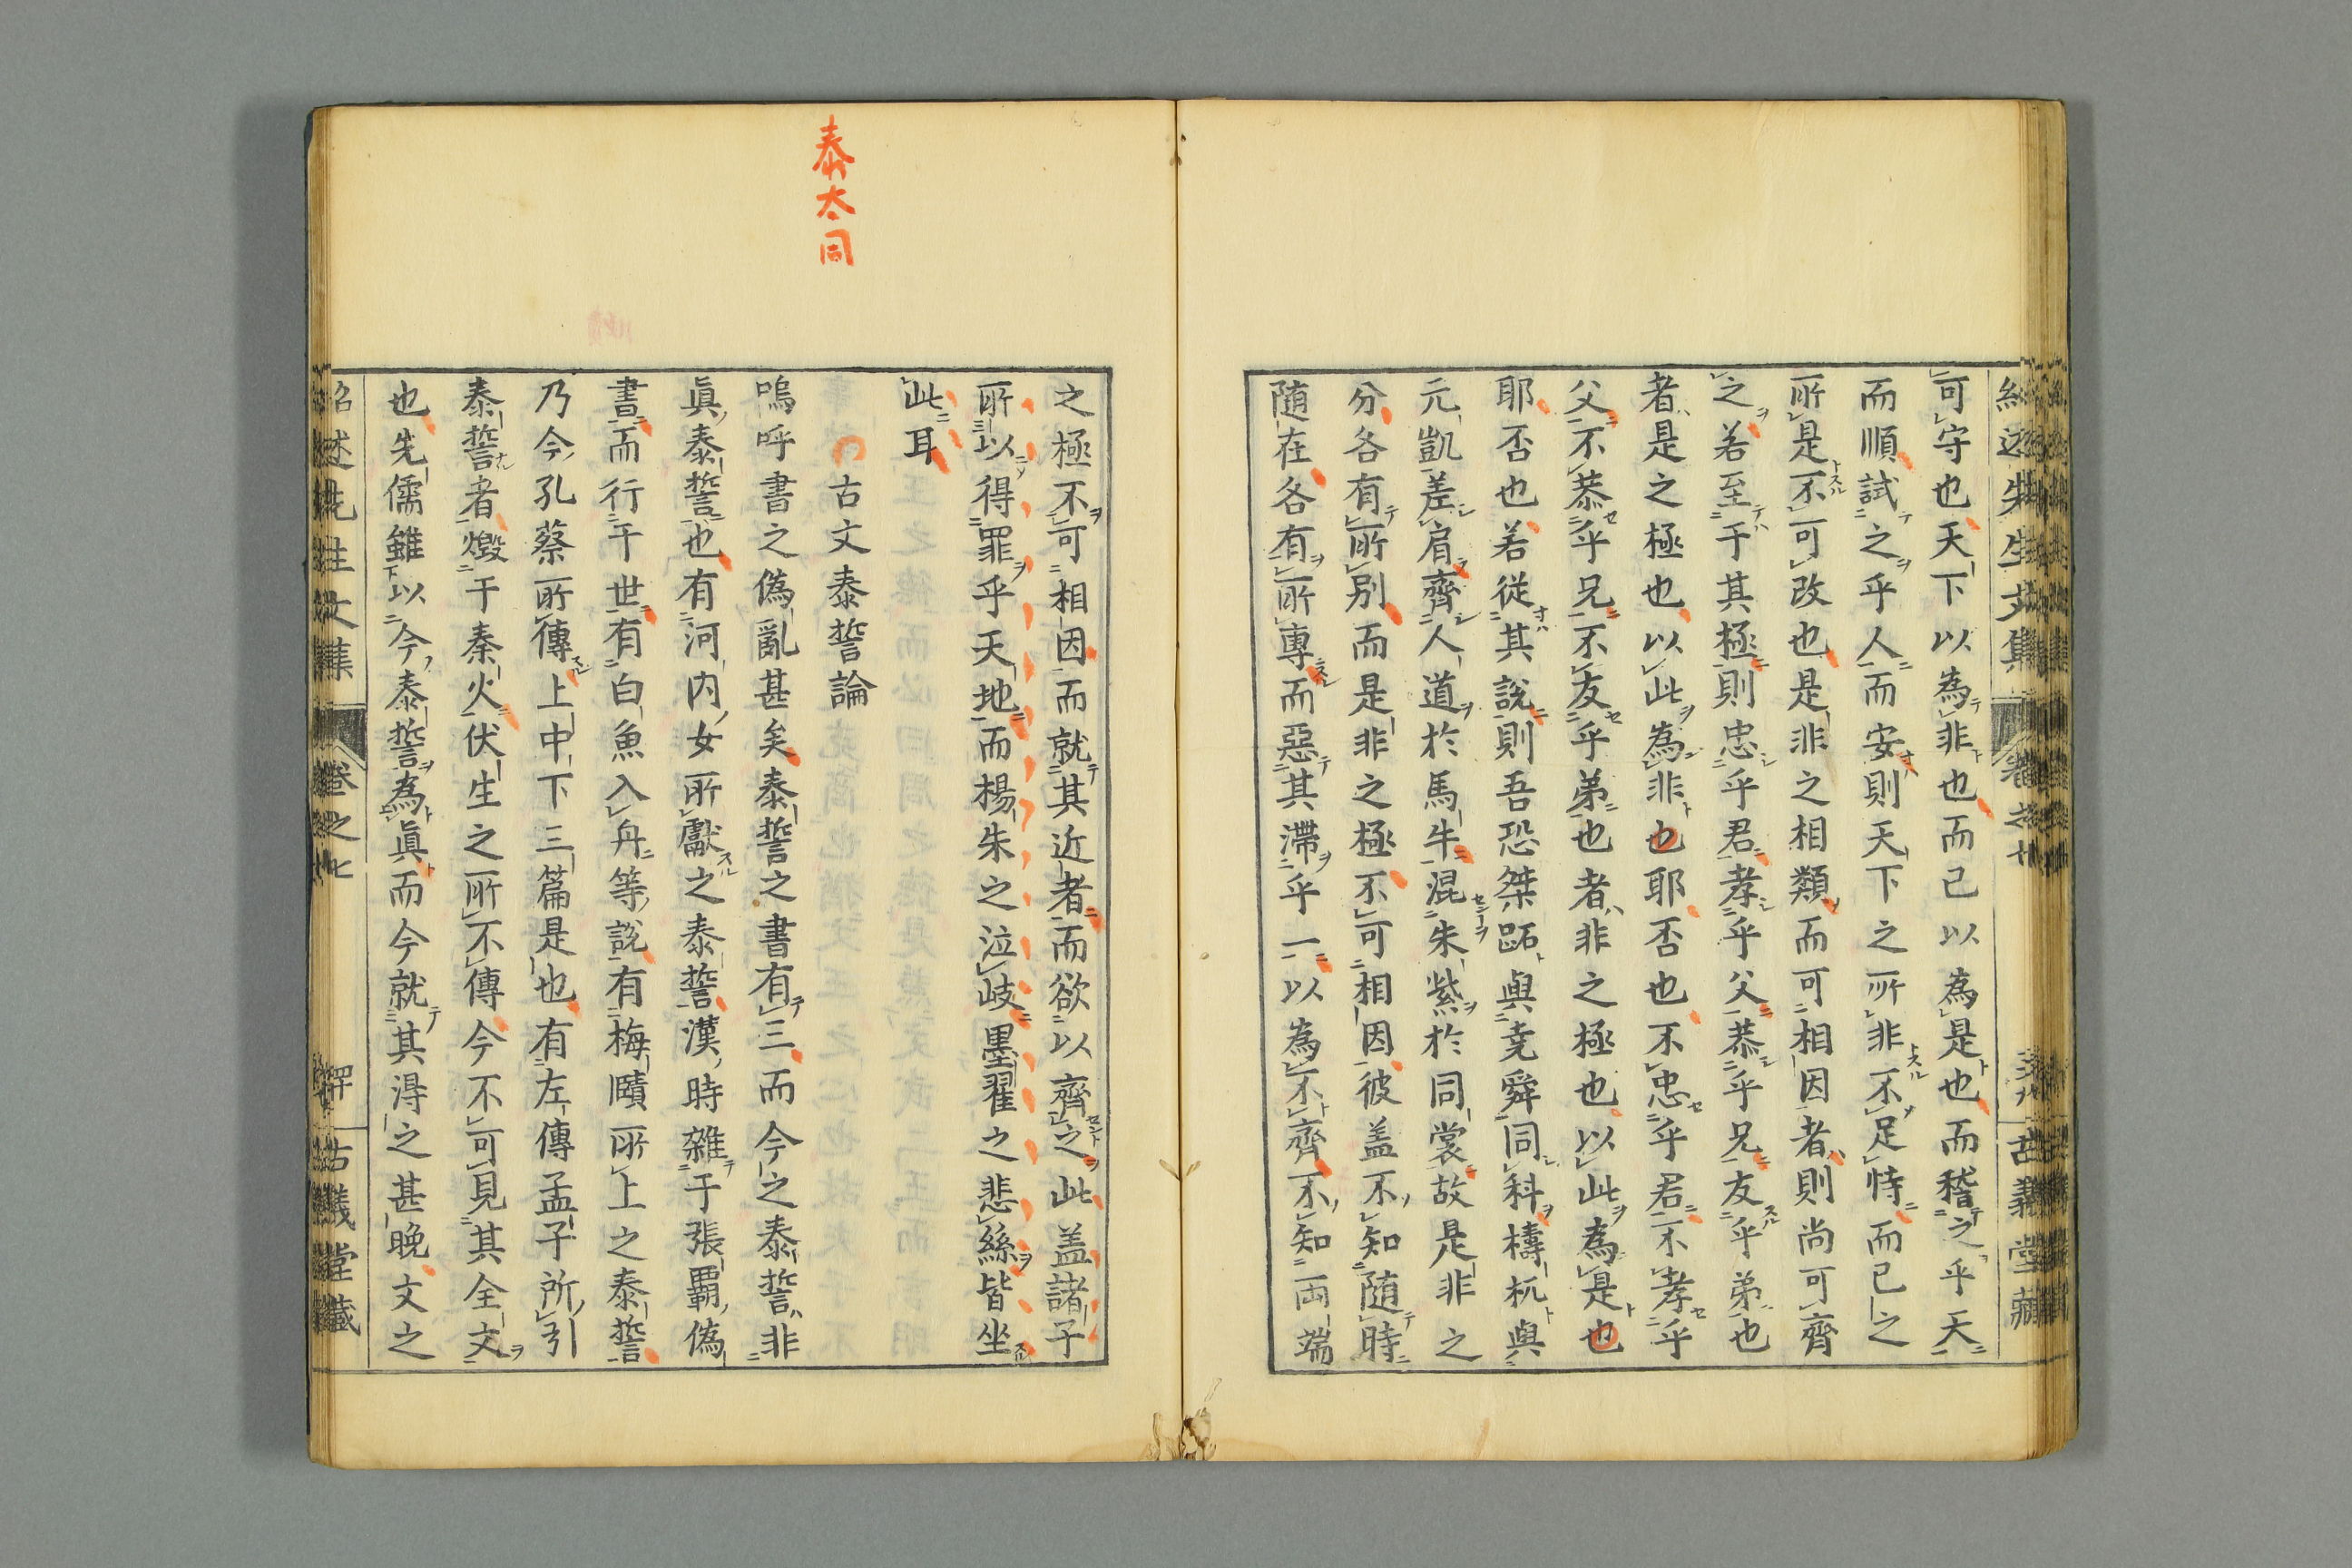 可守也天下以為非也而己以為是也而稽之乎天
而順試之乎人而安則天下之所非不足恃而已之
所是不可改也是非之相類而可相因者則尚可齊
之若至于其極則忠乎君孝乎父恭乎兄友乎弟也
者是之極也以此為非也耶否也不忠乎君不孝乎
父不恭乎兄不友乎弟也者非之極也以此為是也
耶否也若從其說則吾恐桀跖與堯舜同科檮杌與
元凱差肩齊人道於馬牛混朱紫於同裳故是非之
分各有所別而是非之極不可相因彼盖不知随時
随在各有所專而惡其滯乎一以為不齊不知両端
之極不可相因而就其近者而欲以齊之此盖諸子
所以得罪乎天地而楊朱之泣岐墨翟之悲絲皆坐
此耳
泰太同
古文泰誓論
嗚呼書之偽亂甚矣泰誓之書有三而今之泰誓非
眞泰誓也有河内女所獻之泰誓漢時雜于張霸偽
書而行于世有白魚入舟等說有梅賾所上之泰誓
乃今孔蔡所傳上中下三篇是也有左傳孟子所引
泰誓者燬于秦火伏生之所不傳今不可見其全文
也先儒雖以今泰誓為眞而今就其得之甚晚文之
紹述先生文集
卷之
古義堂藏